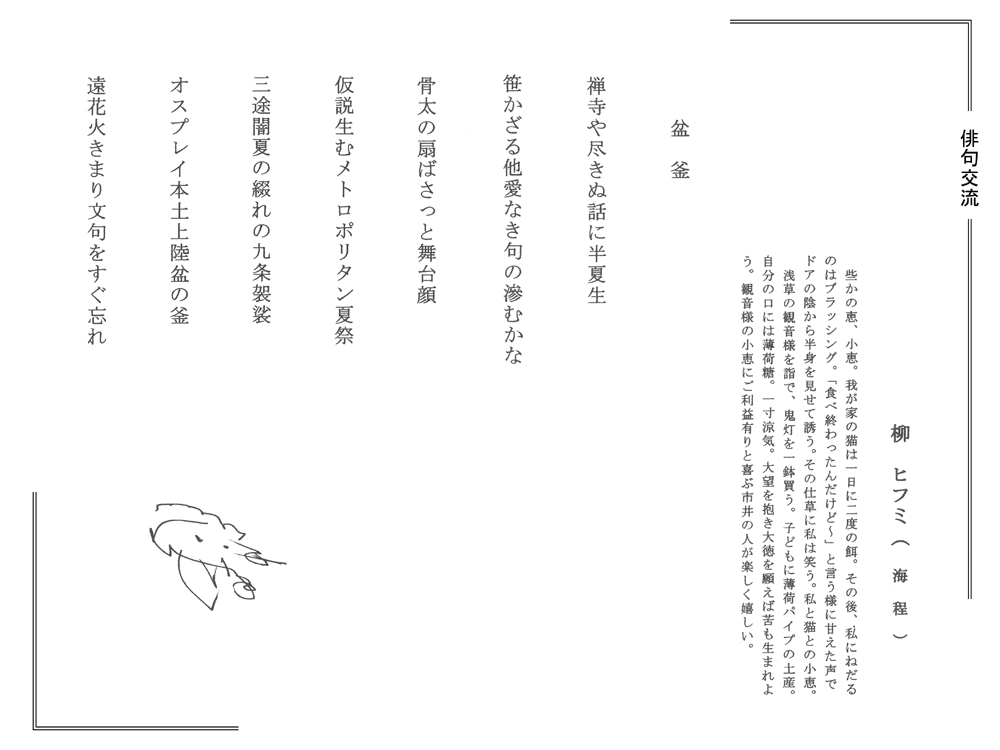 俳句交流
柳 ヒフミ（海程）
些かの恵、小恵。我が家の猫は一日に二度の餌。その後、私にねだる
のはブラッシング。「食べ終わったんだけど〜」と言う様に甘えた声で
ドアの陰から半身を見せて誘う。その仕草に私は笑う。私と猫との小恵。
浅草の観音様を詣で、鬼灯を一鉢買う。子どもに薄荷パイプの土産。
自分の口には薄荷糖。一寸涼気。大望を抱き大徳を願えば苦も生まれよ
う。観音様の小恵にご利益有りと喜ぶ市井の人が楽しく嬉しい。
盆 釜
禅寺や尽きぬ話に半夏生
笹かざる他愛なき句の滲むかな
骨太の扇ばさっと舞台顔
仮説生むメトロポリタン夏祭
三途闇夏の綴れの九条袈裟
オスプレイ本土上陸盆の釜
遠花火きまり文句をすぐ忘れ